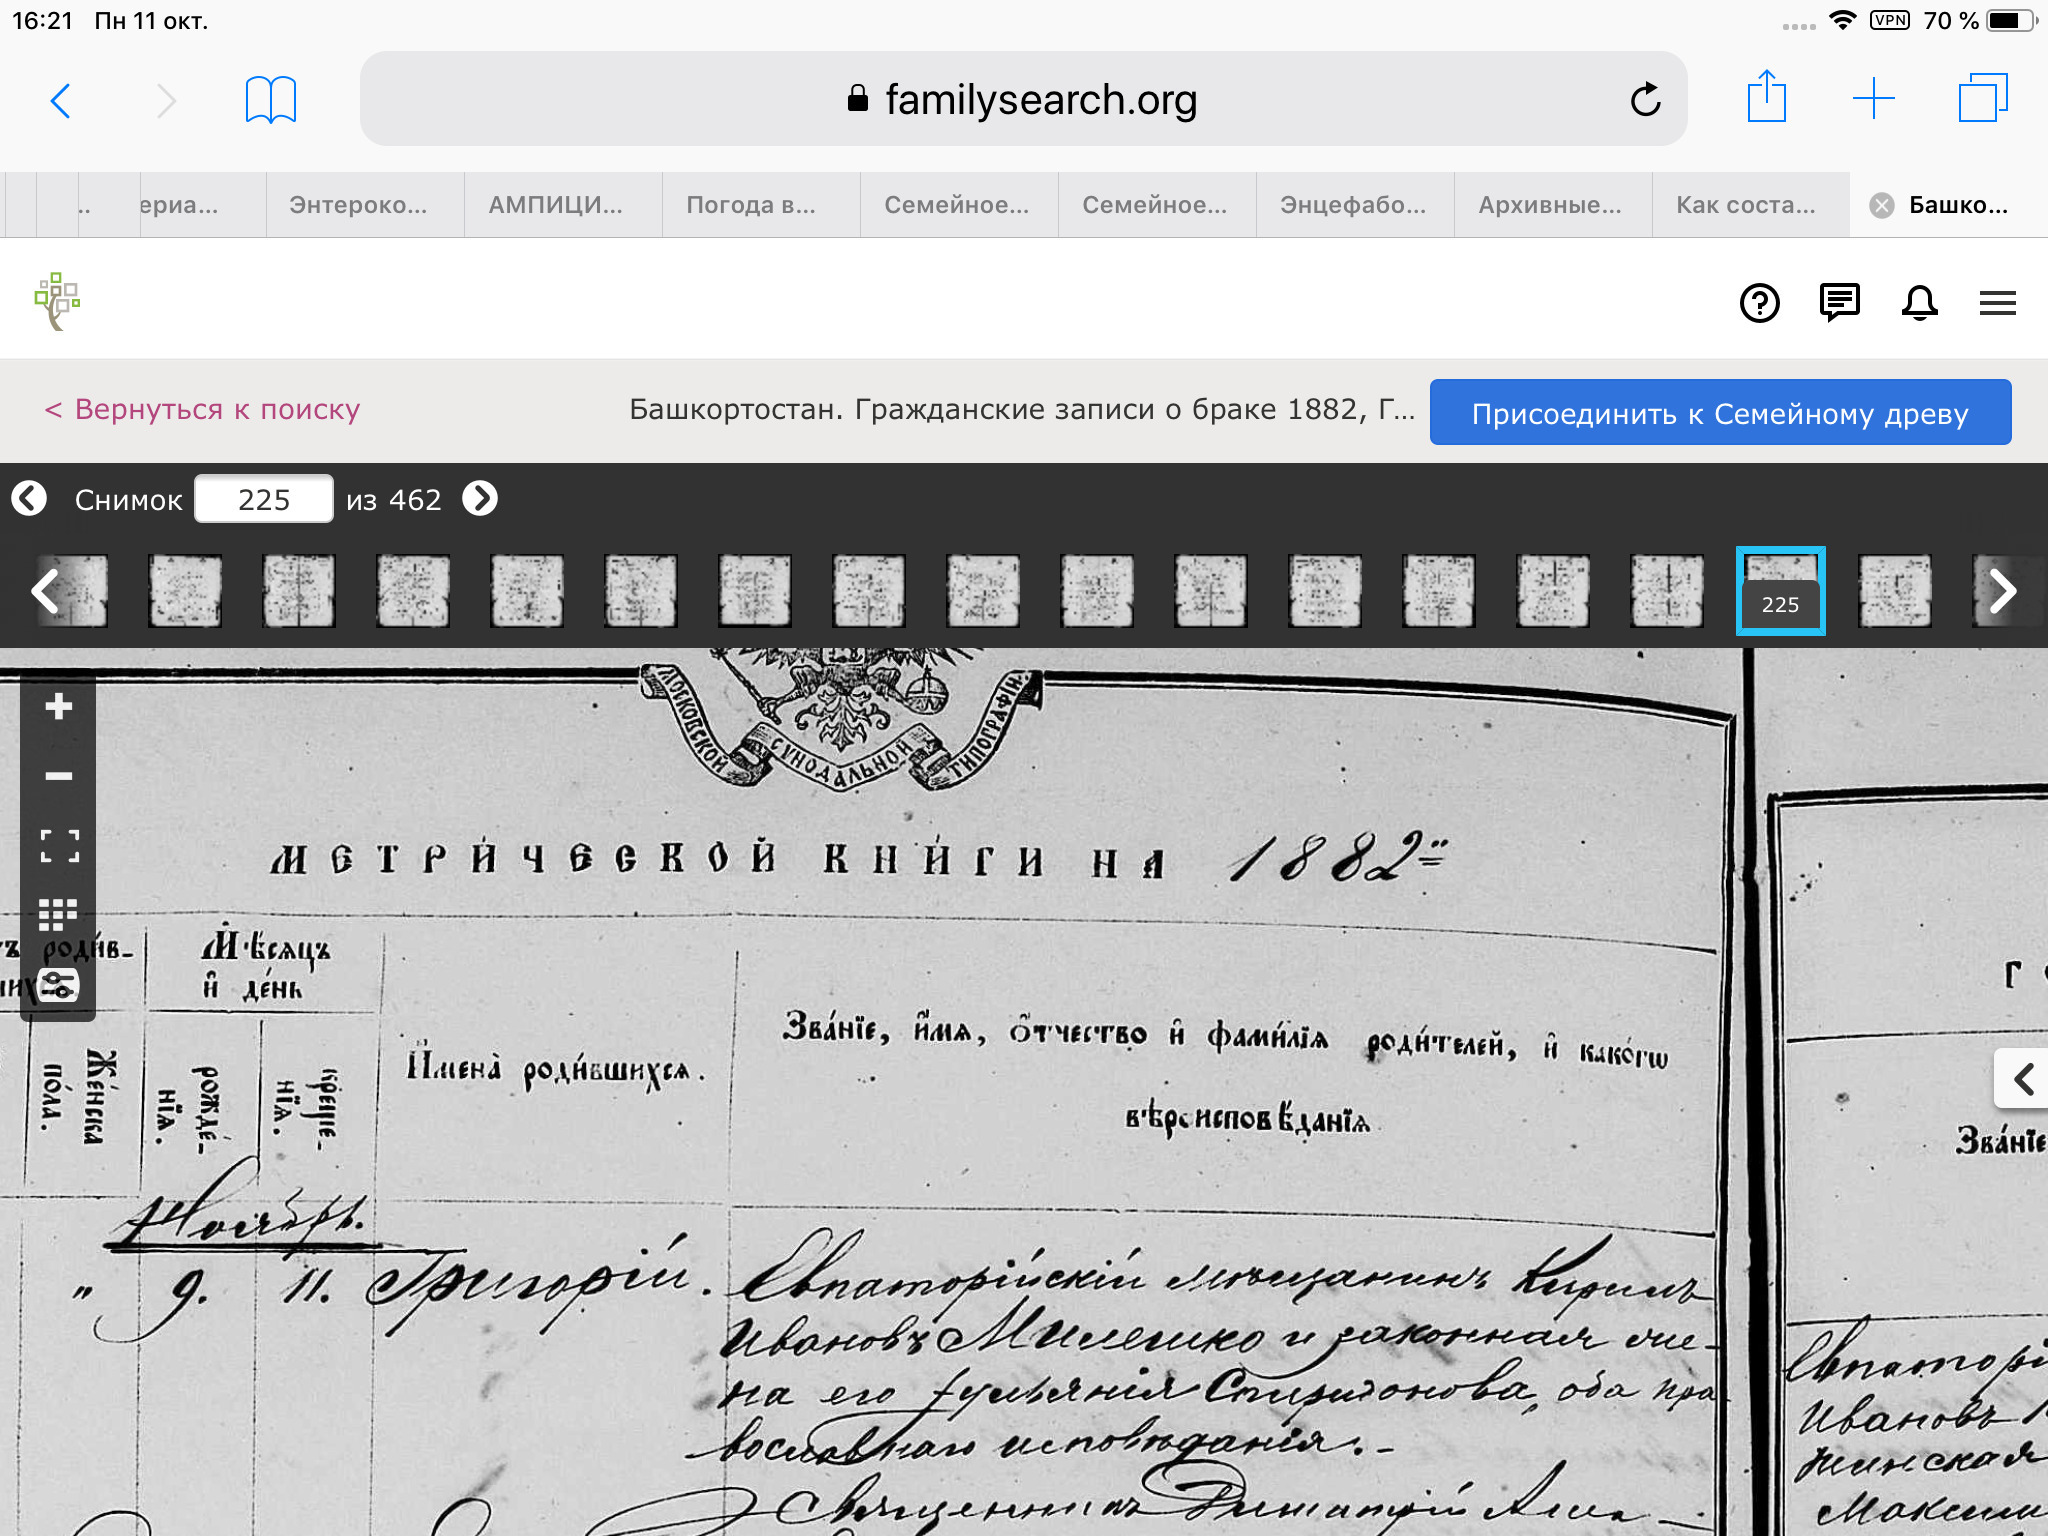 16:21 Пн 11 окт.
VPN 70 %
familysearch.org
..
ериа...
Энтероко...
АМПИЦИ...
Погода в...
Семейное...
Семейное...
Энцефабо...
Архивные...
Как соста...
Башко...
< Вернуться к поиску
Башкортостан. Гражданские записи о браке 1882, Г...
Присоединить к Семейному древу
Снимок 225 из 462
225
МОСКОВСКОЙ СУНОДАЛЬНОЙ ТИПОГРАФІИ.
МЕТРИ́ЧЕСКОЙ КНИ́ГИ НА 1882
роди́в-
Мѣ́сяцъ
и҆ де́нь
Же́нска по́ла.
рожде́-нїѧ.
креще́-нїѧ.
И҆мена̀ роди́вшихсѧ.
Зва́нїе, и҆́мѧ, ѻ҆́тчество и҆ фами́лїѧ роди́телей, и҆ како́гѡ
вѣроисповѣ́данїѧ
Г
Зва́нїе
Ноябрь.
" 9. 11. Григорій. Евпаторійскій мѣщанинъ Кирилъ
Ивановъ Милешко и законная же-
на его Іульянія Спиридонова, оба пра-
вославнаго исповѣданія.-
Священникъ Димитрій
Евпаторі
Ивановъ
Максим